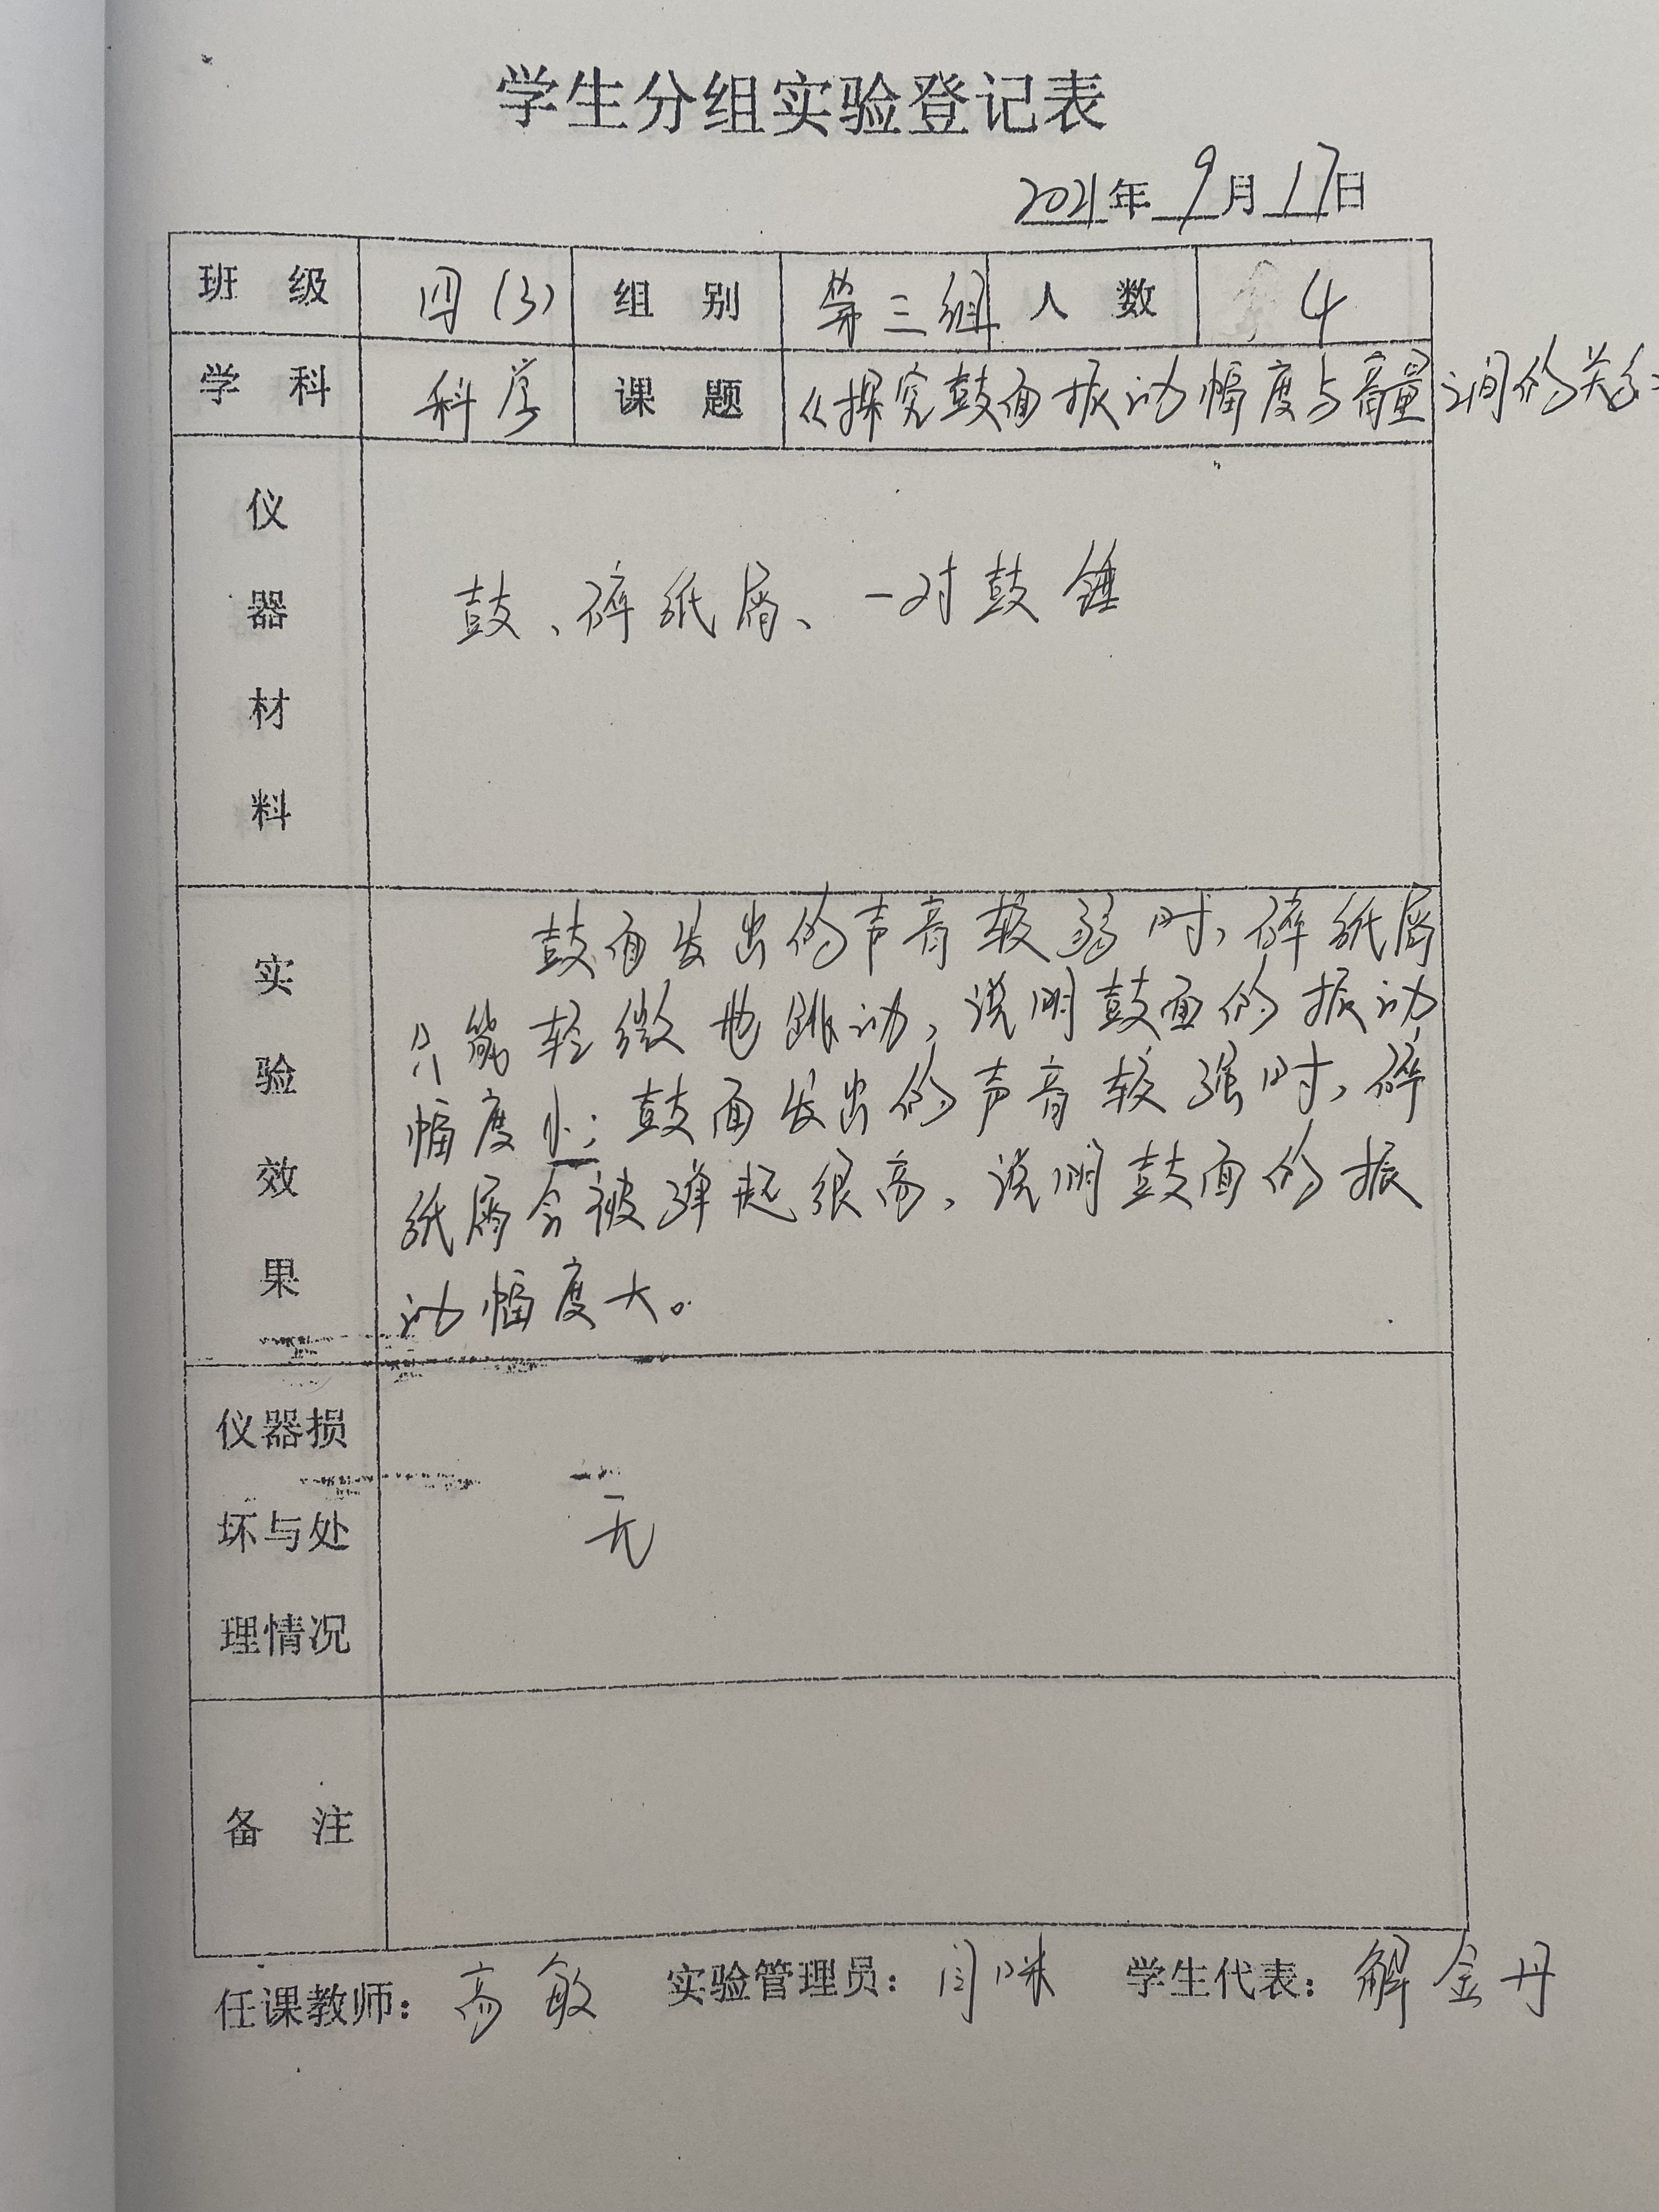 学生分组实验登记表
2021年 9月 17日
班 级 四(3) 组 别 第三组 人 数 4
学 科 科学 课 题 《探究鼓面振动幅度与音量之间的关系
仪器材料 鼓、碎纸屑、一对鼓锤
实验效果 鼓面发出的声音较弱时,碎纸屑
只能轻微地跳动,说明鼓面的振动
幅度小;鼓面发出的声音较强时,碎
纸屑会被弹起很高,说明鼓面的振
动幅度大。
仪器损
坏与处 无
理情况
备 注
任课教师:高敏 实验管理员:闫咪 学生代表:解金丹